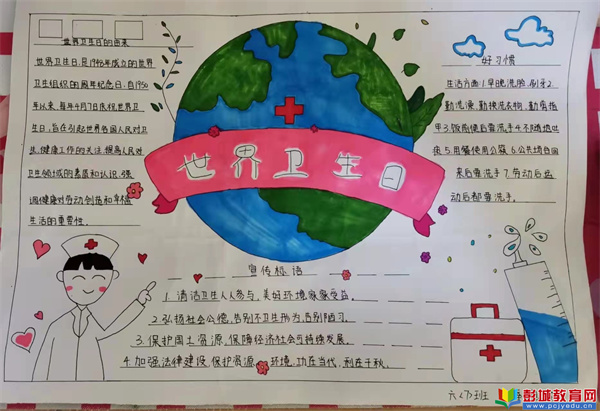 世界卫生日的由来
世界卫生日,是1948年成立的世界
卫生组织的周年纪念日,自1950
年以来,每年4月7日庆祝世界卫
生日,旨在引起世界各国人民对卫
生、健康工作的关注,提高人民对
卫生领域的素质和认识,强
调健康对劳动创造和幸福
生活的重要性。
世界卫生日
好习惯
生活方面:1.早晚洗脸,刷牙2.
勤洗澡,勤换洗衣物,勤剪指
甲3.饭前便后要洗手4.不随地吐
痰5.用餐使用公筷6.公共场合回
来后要洗手7.劳动后运
动后都要洗手。
宣传标语
1.清洁卫生人人参与,美好环境家家受益。
2.弘扬社会公德,告别不卫生行为,告别陋习。
3.保护国土资源,保障经济社会可持续发展。
4.加强法律建设,保护资源环境,功在当代,利在千秋。
六(7)班
彭城教育网
www.pcjyedu.cn